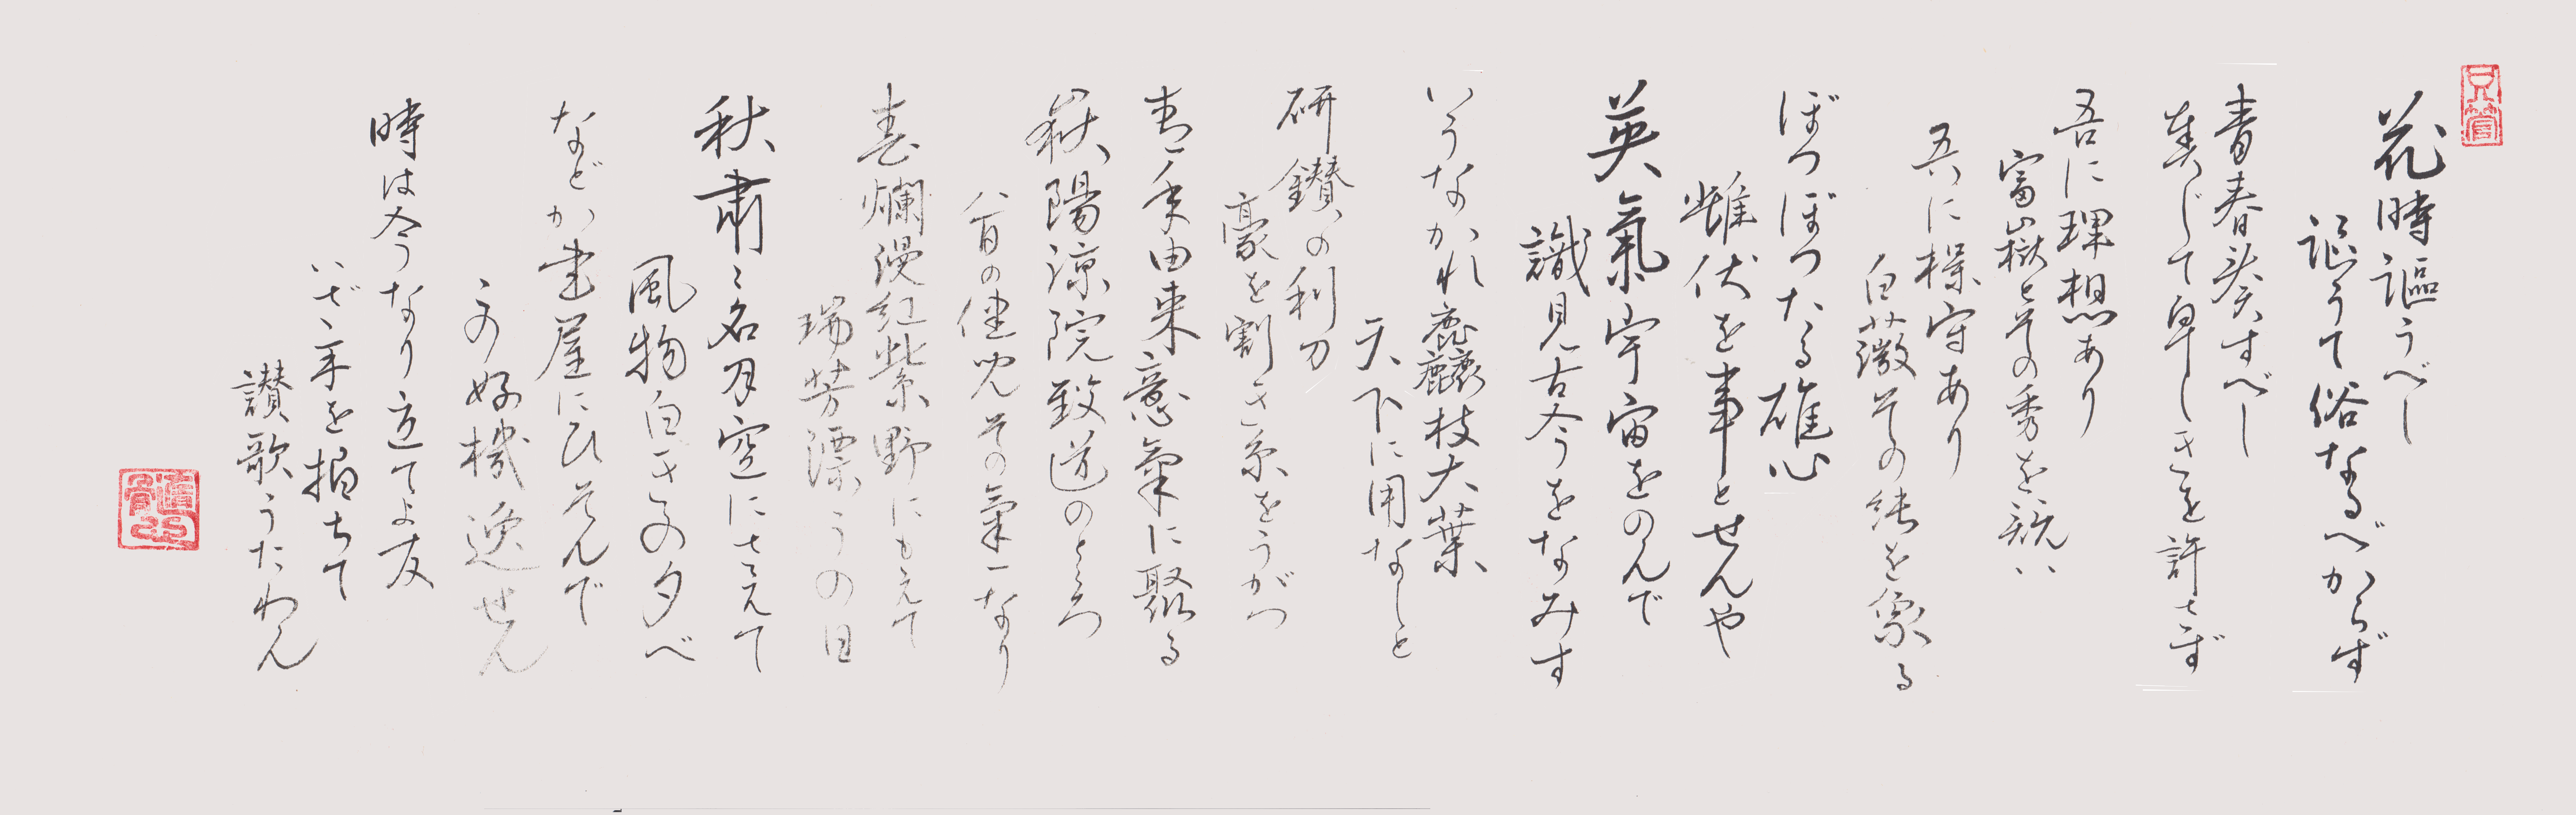 花時謳うべし
謳うて俗なるべからず
青春奏すべし
奏じて卑しきを許さず
吾に理想あり
富嶽とその秀を競い
吾に操守あり
白薇その純を象る
ぼつぼつたる雄心
雌伏を事とせんや
英氣宇宙をのんで
識見古今をなみす
いうなかれ麁麤枝大葉
天下に用なしと
研鑽の利刀
豪を割き糸をうがつ
青年由来意氣に聚る
嶽陽涼院致道のところ
八百の健児その氣一なり
春爛漫紅紫野にもえて
瑞芳漂うの日
秋粛々名月空にさえて
風物白きの夕べ
などか書屋にひそんで
この好機逸せん
時は今なり立てよ友
いざ手を拍ちて
讃歌うたわん